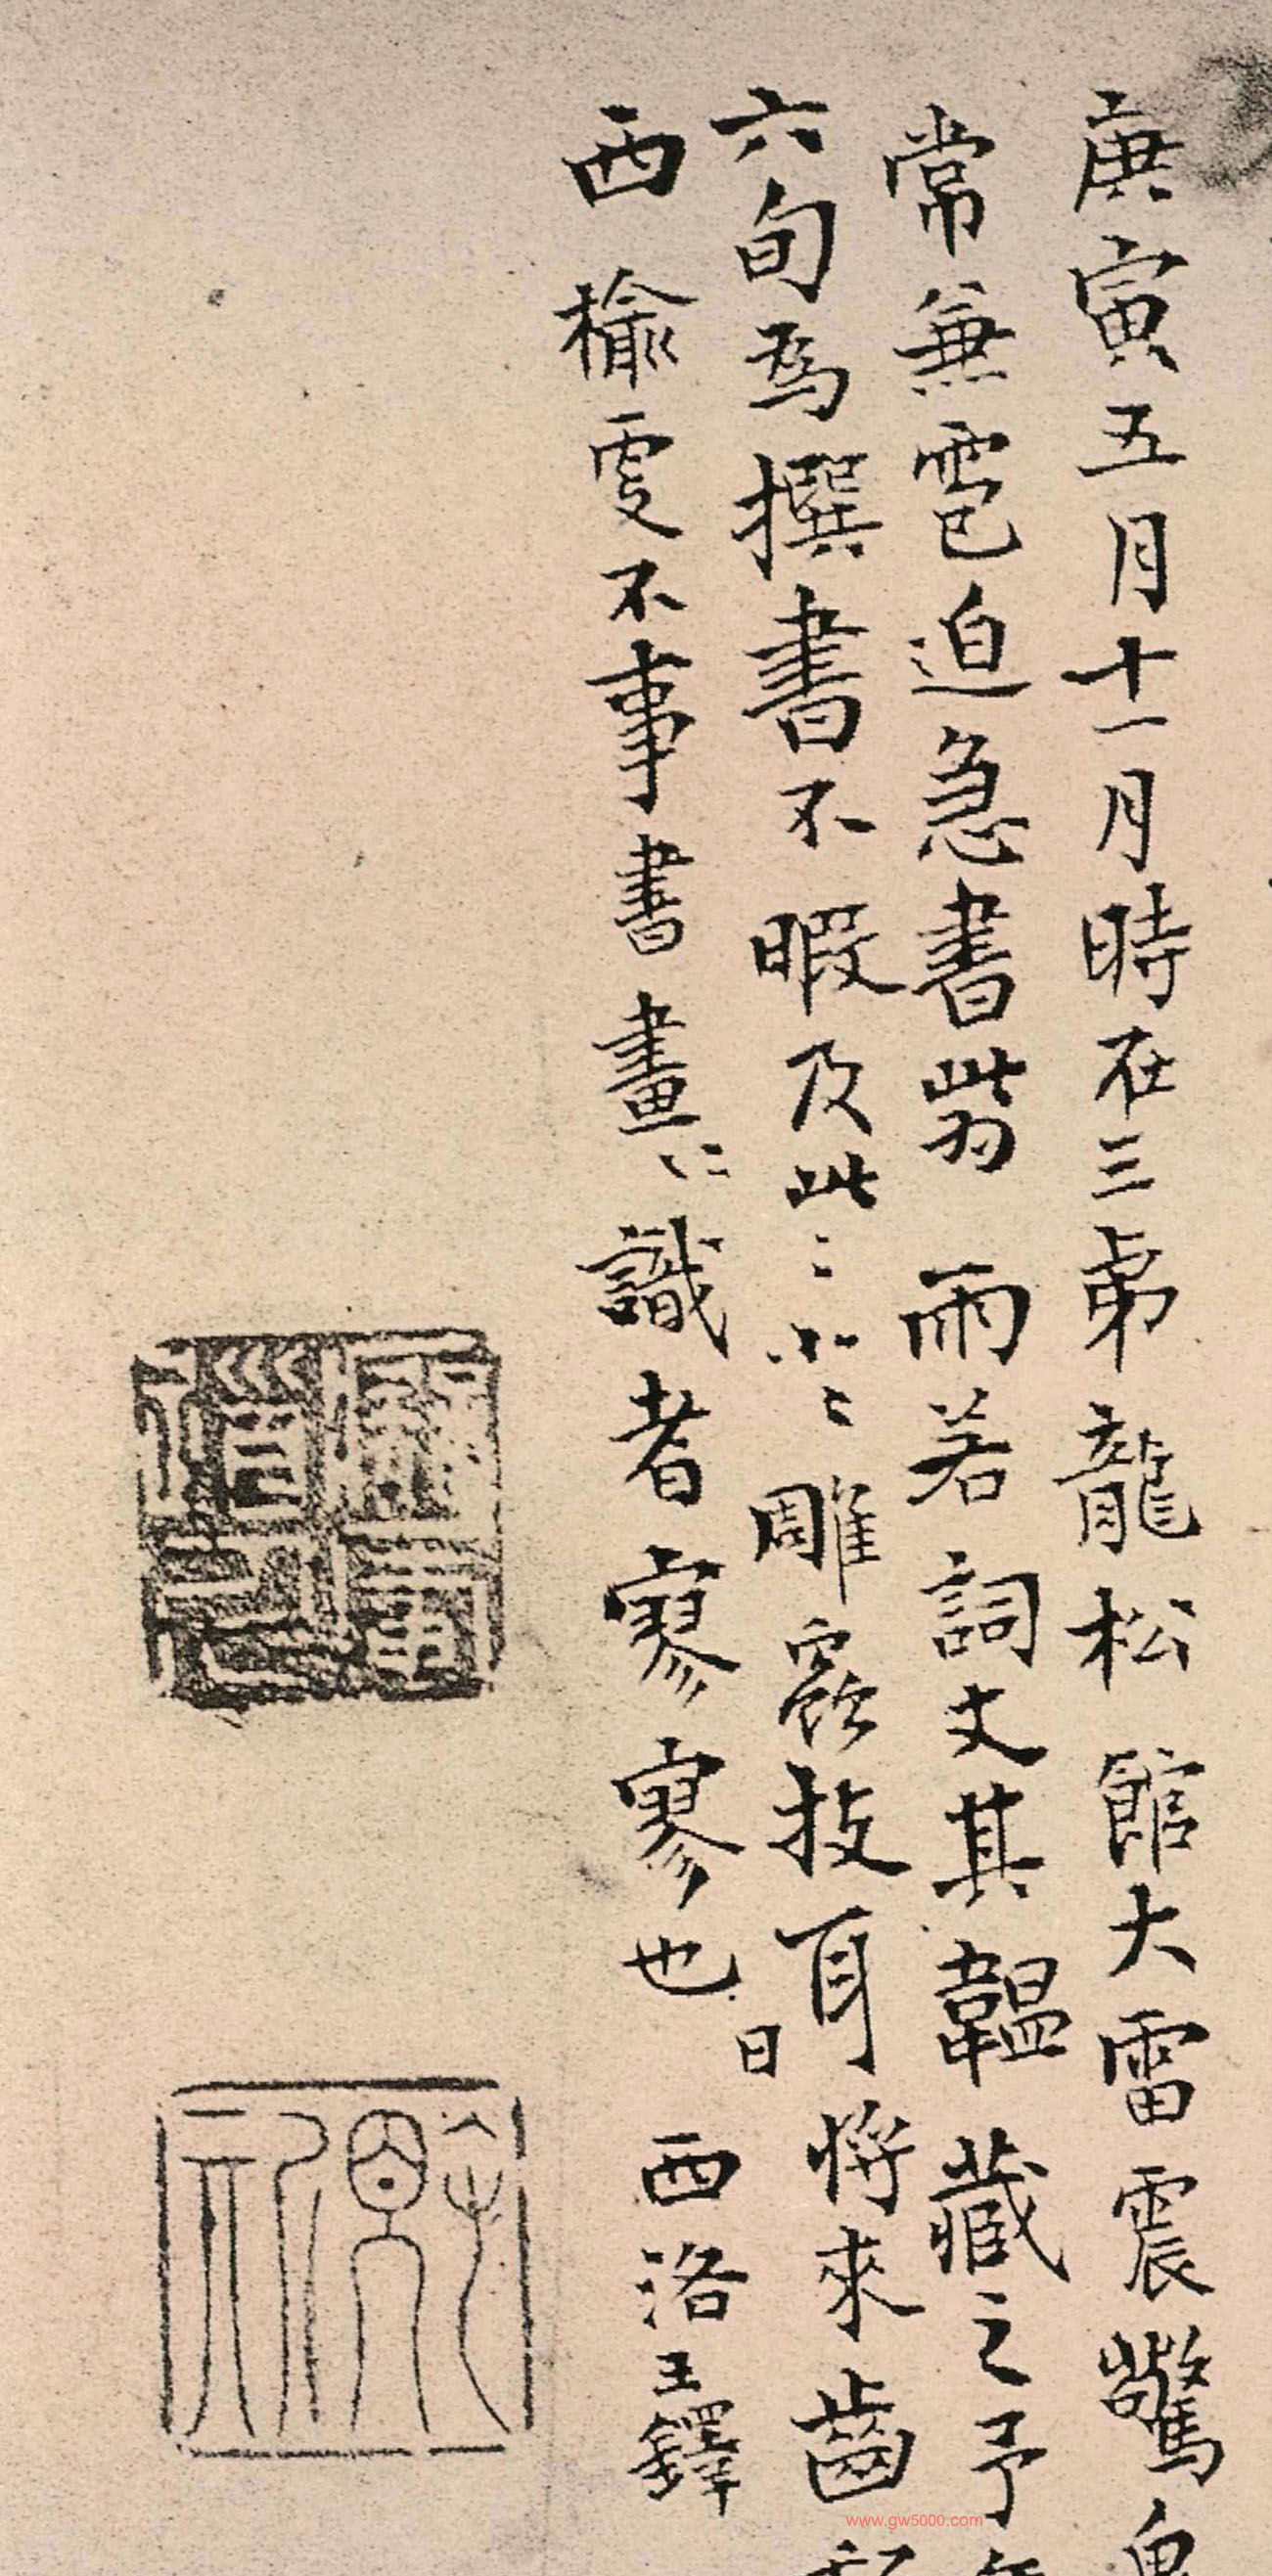 庚寅五月十一月時在三弟龍松館大雷震驚
常兼雹迫急書雨若詞文其韞藏之予
六旬為撰書不暇及此〻小〻雕蟲技耳將來齒
西榆不事書畫〻識者寥寥也
日
西洛王鐸
www.gw5000.com